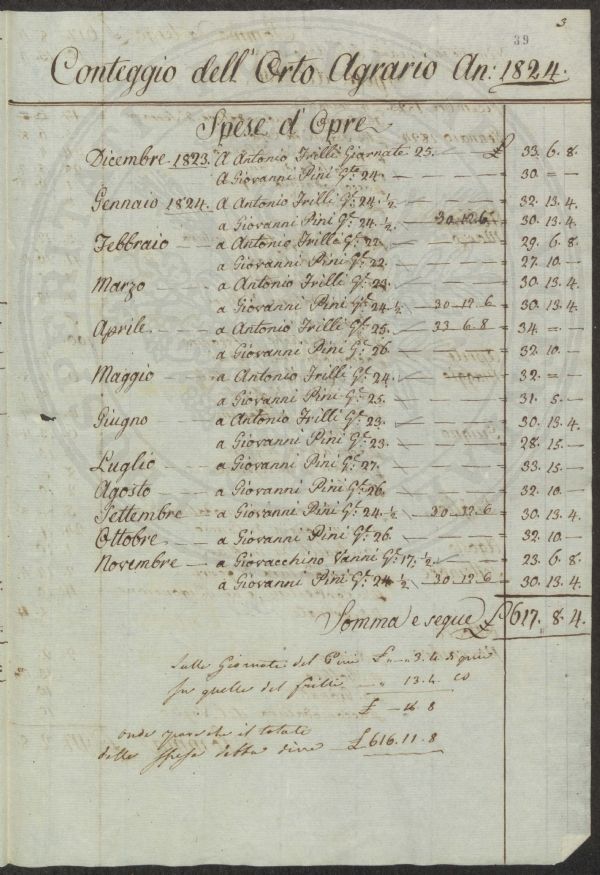 3
39
Conteggio dell'Orto Agrario An: 1824.
Spese d'Opre
Dicembre 1823. A Antonio Frilli Giornate 25. — £ 33. 6. 8.
A Giovanni Pini Gte 24. — 30. =
Gennaio 1824. A Antonio Frilli Gte 24. ½ — 32. 13. 4.
a Giovanni Pini Gte 24. ½ — 30. 12. 6. = 30. 13. 4.
Febbraio — a Antonio Frilli Gte 22. — = 29. 6. 8
a Giovanni Pini Gte 22. — = 27. 10. —
Marzo — a Antonio Frilli Gte 23. — = 30. 13. 4.
a Giovanni Pini Gte 24. ½ — 30. 12. 6 = 30. 13. 4
Aprile — a Antonio Frilli Gte 25. — 33. 6. 8 = 34. = —
a Giovanni Pini Gte 26. — = 32. 10. —
Maggio — a Antonio Frilli Gte 24. — = 32. = —
a Giovanni Pini Gte 25. — = 31. 5. —
Giugno a Antonio Frilli Gte 23. — = 30. 13. 4
a Giovanni Pini Gte 23. — = 28. 15. —
Luglio — a Giovanni Pini Gte 27. — = 33. 15. —
Agosto — a Giovanni Pini Gte 26. — = 32. 10. —
Settembre — a Giovanni Pini Gte 24. ½ — 30. 12. 6 = 30. 13. 4
Ottobre — a Giovanni Pini Gte 26. — = 32. 10 —
Novembre — a Giovacchino Vanni Gte 17. ½ — = 23. 6. 8
a Giovanni Pini Gte 24. ½ — 30. 12. 6 = 30. 13. 4.
Somma e segue £ 617. 8. 4.
Sulle Giornate del Pini £ „ — „ 3. 4 di più
In quelle del Frilli — „ 13. 4
£ — 16 8
onde pare che il totale
della spesa debba dire — £ 616. 11. 8